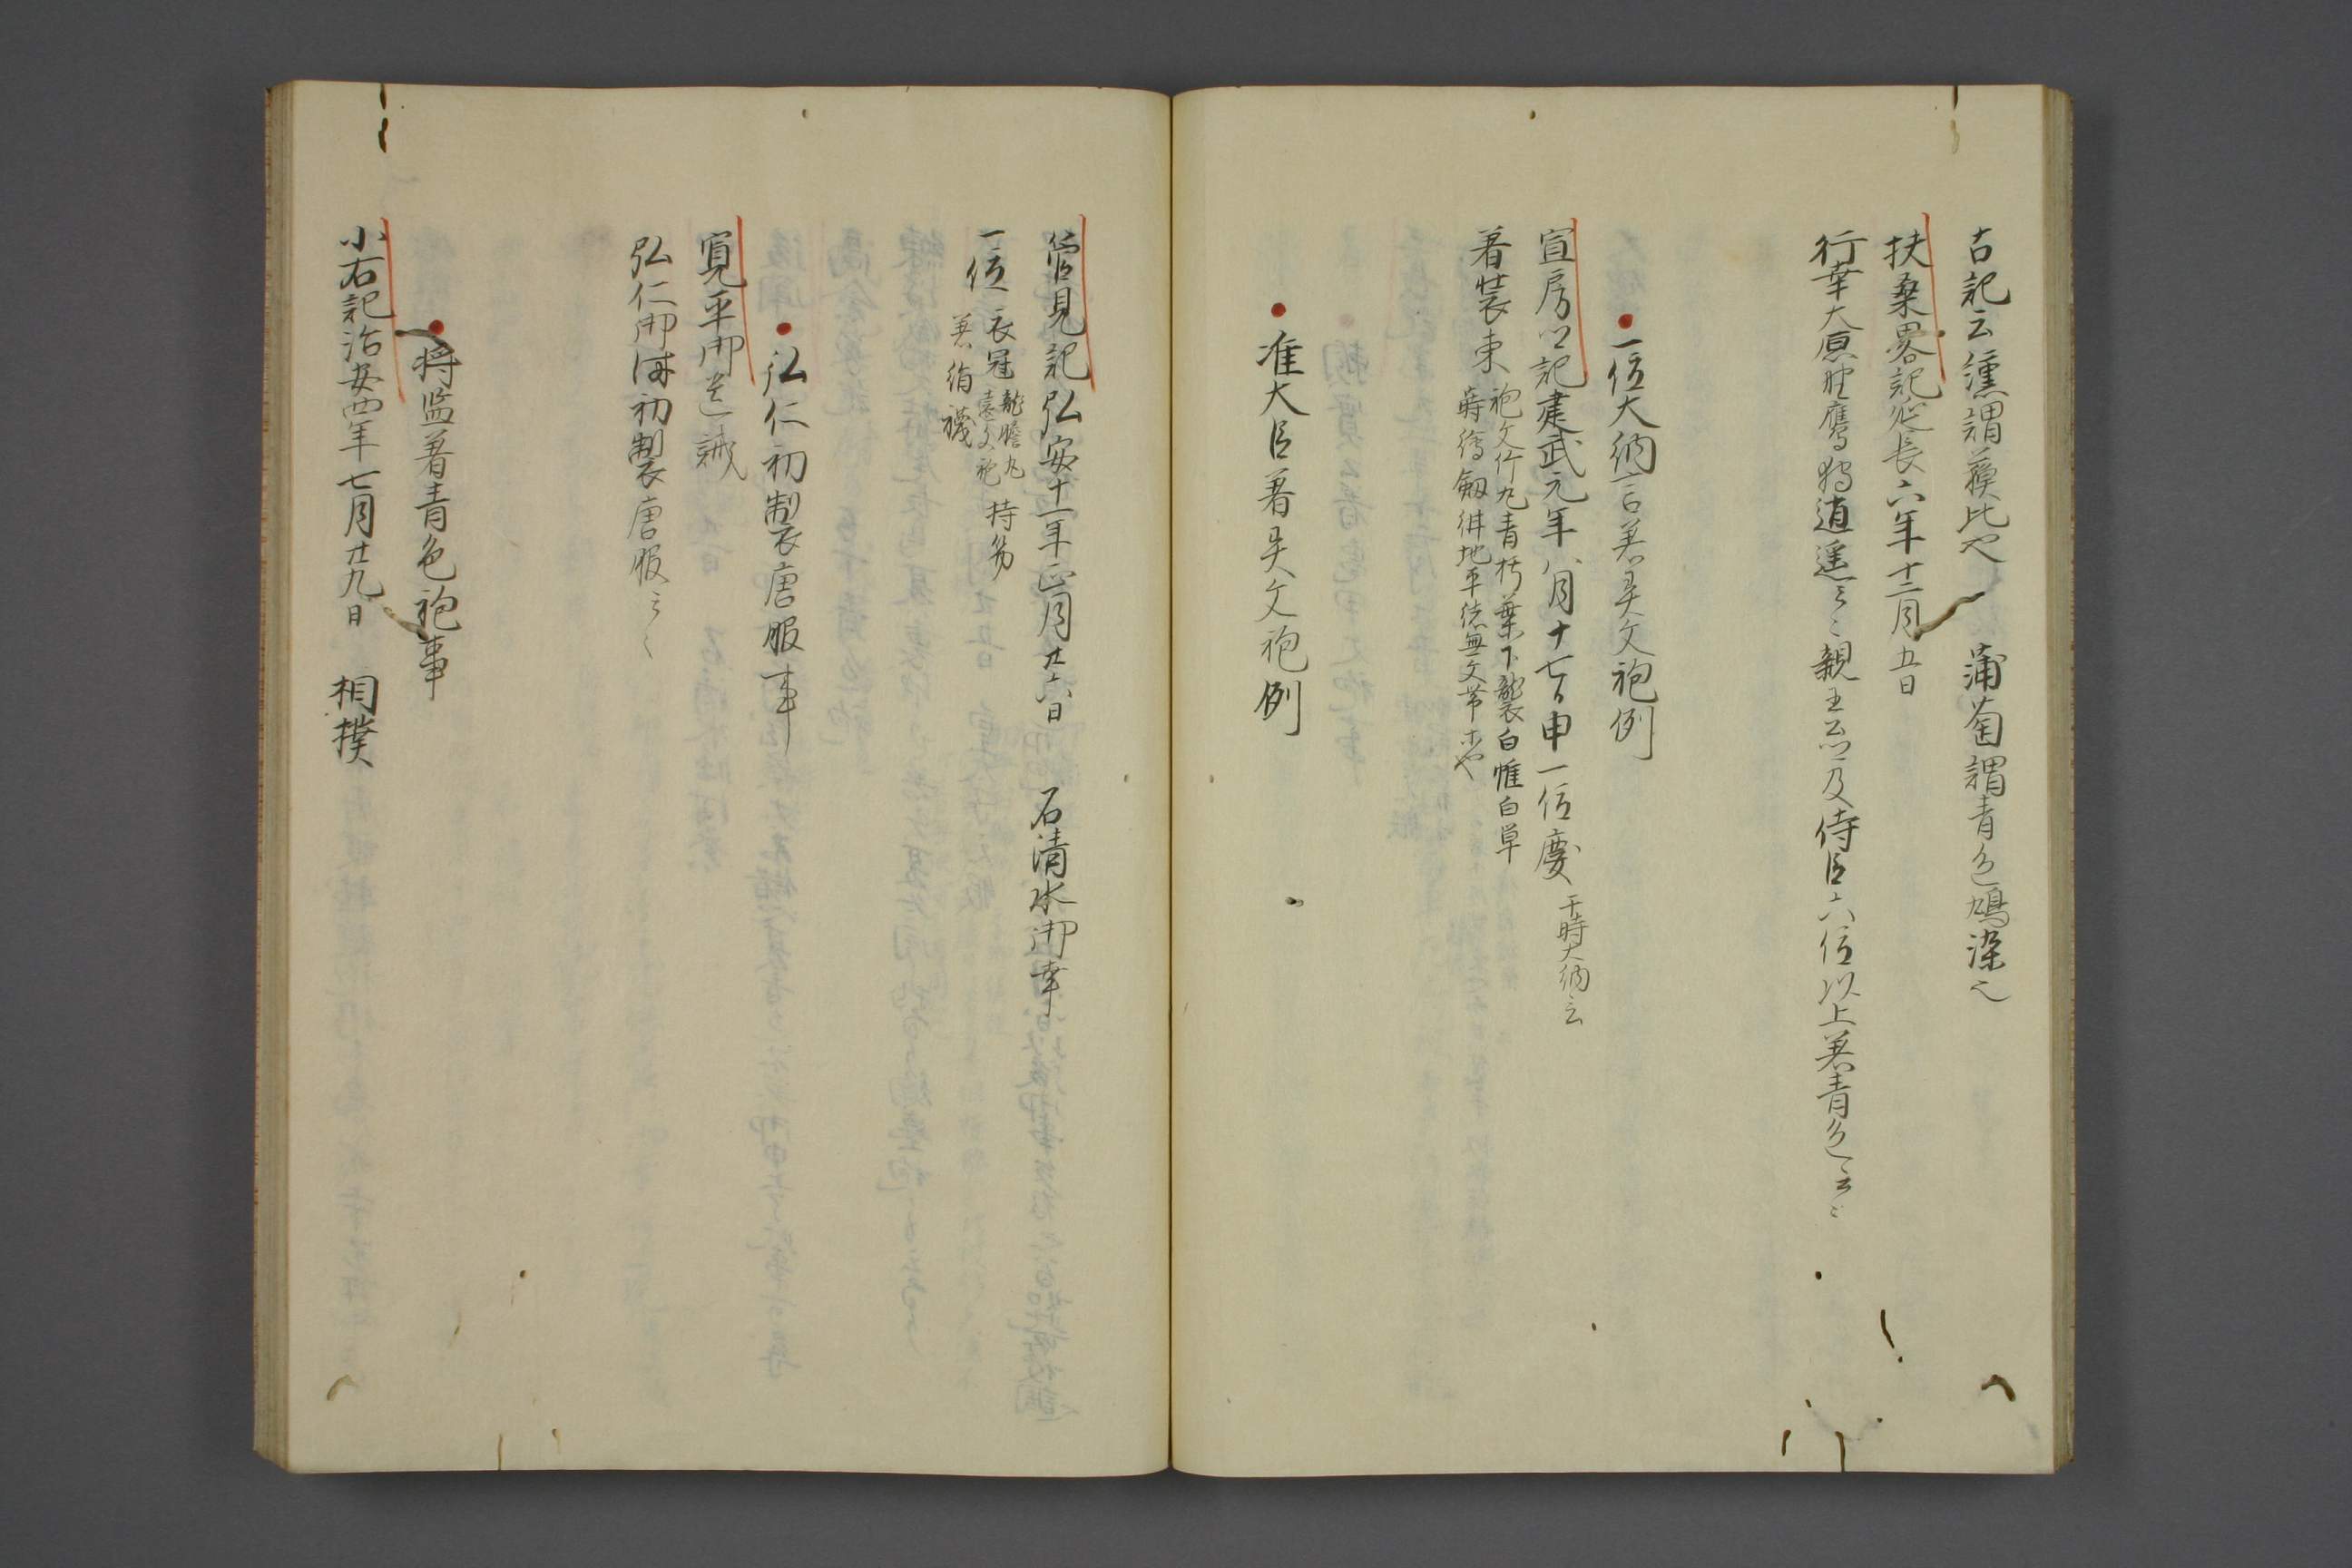 古記云纁謂蘇比也　蒲萄謂青色鳩染也
扶桑畧記延長六年十二月五日
行幸大原野鷹狩逍遥云々親王公卿及侍臣六位以上着青色云々
一位大納言着異文袍例
宣房公記建武元年八月十七日申一位慶 于時大納言
着装束 袍文竹丸青朽葉下襲白帷白単
蒔絵劔紺地平緒無文帯等也
准大臣着異文袍例
管見記弘安十一年正月廿六日　石清水御幸
一位衣冠 龍膽丸
遠文袍 持笏
着絹襪
弘仁初製唐服事
寛平御遺誡
弘仁御時初製唐服云々
将監着青色袍事
小右記治安四年七月廿九日　相撲